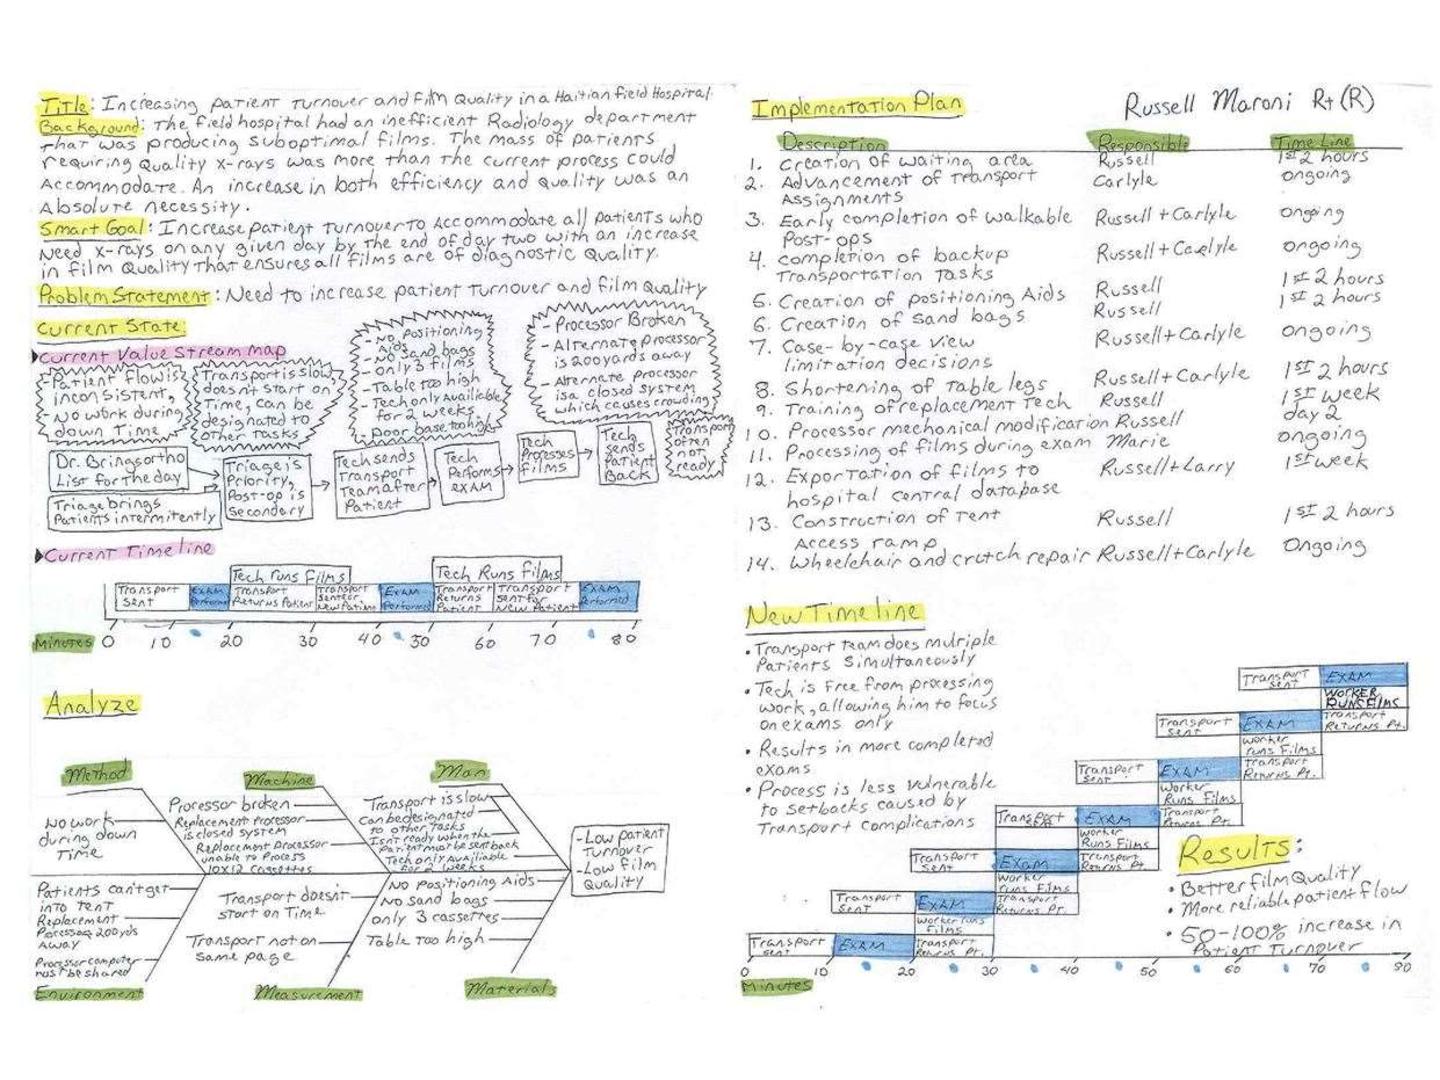 Title: Increasing patient Turnover and Film Quality in a Haitian Field Hospital.
Background: The field hospital had an inefficient Radiology department
that was producing suboptimal films. The mass of patients
requiring Quality x-rays was more than the current process could
Accommodate. An increase in both efficiency and quality was an
Absolute necessity.
Smart Goal: Increase patient turnover to Accommodate all patients who
Need x-rays on any given day by the end of day two with an increase
in film Quality that ensures all films are of diagnostic Quality.
Problem Statement: Need to increase patient Turnover and film Quality
Current State:
Current Value Stream map
-Patient flow is
inconsistent,
-No work during
down Time
Transport is slow,
doesn't start on
Time, can be
designated to
other Tasks
-No Positioning
Aids
-No Sand bags
-only 3 films
-Table too high
-Tech only Availiable
for 2 weeks
Poor base too high
-Processor Broken
-Alternate processor
is 200 yards away
-Alternate processor
is a closed system
which causes crowding
Transport
often
not
ready
Dr. Brings ortho
List for the day
Triage brings
Patients intermitently
Triage is
Priority,
Post-op is
Secondery
Tech sends
Transport
Team after
Patient
Tech
Performs
exam
Tech
Processes
films
Tech
sends
Patient
Back
Current Timeline
Tech runs films
Tech Runs films
Transport
Sent
Exam
Performed
Transport
Returns Patient
Transport
sent for
New Patient
Exam
Performed
Transport
Returns
Patient
Transport
sent for
New Patient
Exam
Performed
Minutes 0 10 20 30 40 50 60 70 80
Analyze
Method
Machine
Man
No work
during down
Time
Processor broken
Replacement Processor
is closed system
Replacement Processor
unable to Process
10x12 cassettes
Transport is slow
Can be designated
to other Tasks
Isn't ready when the
Patient must be sent back
Tech only availiable
for 2 weeks
-Low patient
Turnover
-Low film
Quality
Patients can't get
into Tent
Replacement
Processor 200yds
Away
Processor computer
must be shared
Transport doesn't
start on Time
Transport not on
same page
No positioning Aids
No sand bags
only 3 cassettes
Table Too high
Environment
Measurement
Materials
Implementation Plan
Russell Maroni Rt (R)
Description Responsible Time Line
1. Creation of waiting area Russell 1st 2 hours
2. Advancement of Transport Carlyle ongoing
Assignments
3. Early completion of walkable Russell + Carlyle ongoing
Post-ops
4. completion of backup Russell + Carlyle ongoing
Transportation Tasks
5. Creation of positioning Aids Russell 1st 2 hours
6. Creation of sand bags Russell 1st 2 hours
7. Case-by-case view Russell + Carlyle ongoing
limitation decisions
8. Shortening of Table legs Russell + Carlyle 1st 2 hours
9. Training of replacement Tech Russell 1st week
10. Processor mechanical modification Russell day 2
11. Processing of films during exam Marie ongoing
12. Exportation of films to Russell + Larry 1st week
hospital central database
13. Construction of Tent Russell 1st 2 hours
Access ramp
14. Wheelchair and crutch repair Russell + Carlyle Ongoing
New Timeline
• Transport team does multiple
Patients Simultaneously
• Tech is Free from processing
work, allowing him to focus
on exams only
• Results in more completed
exams
• Process is less vulnerable
to setbacks caused by
Transport complications
Transport
sent
EXAM
WORKER
RUNS FILMS
Transport
sent
EXAM
Transport
Returns Pt.
worker
runs Films
Transport
sent
EXAM
Transport
Returns Pt.
Worker
Runs Films
Transport
sent
EXAM
Transport
Returns Pt.
worker
Runs Films
Transport
sent
Exam
Transport
Returns Pt
worker
runs Films
Transport
sent
EXAM
Transport
Returns Pt.
worker runs
films
Transport
sent
EXAM
Transport
Returns Pt.
Results:
• Better film Quality
• More reliable patient flow
• 50-100% increase in
Patient Turnover
0 10 20 30 40 50 60 70 90
Minutes